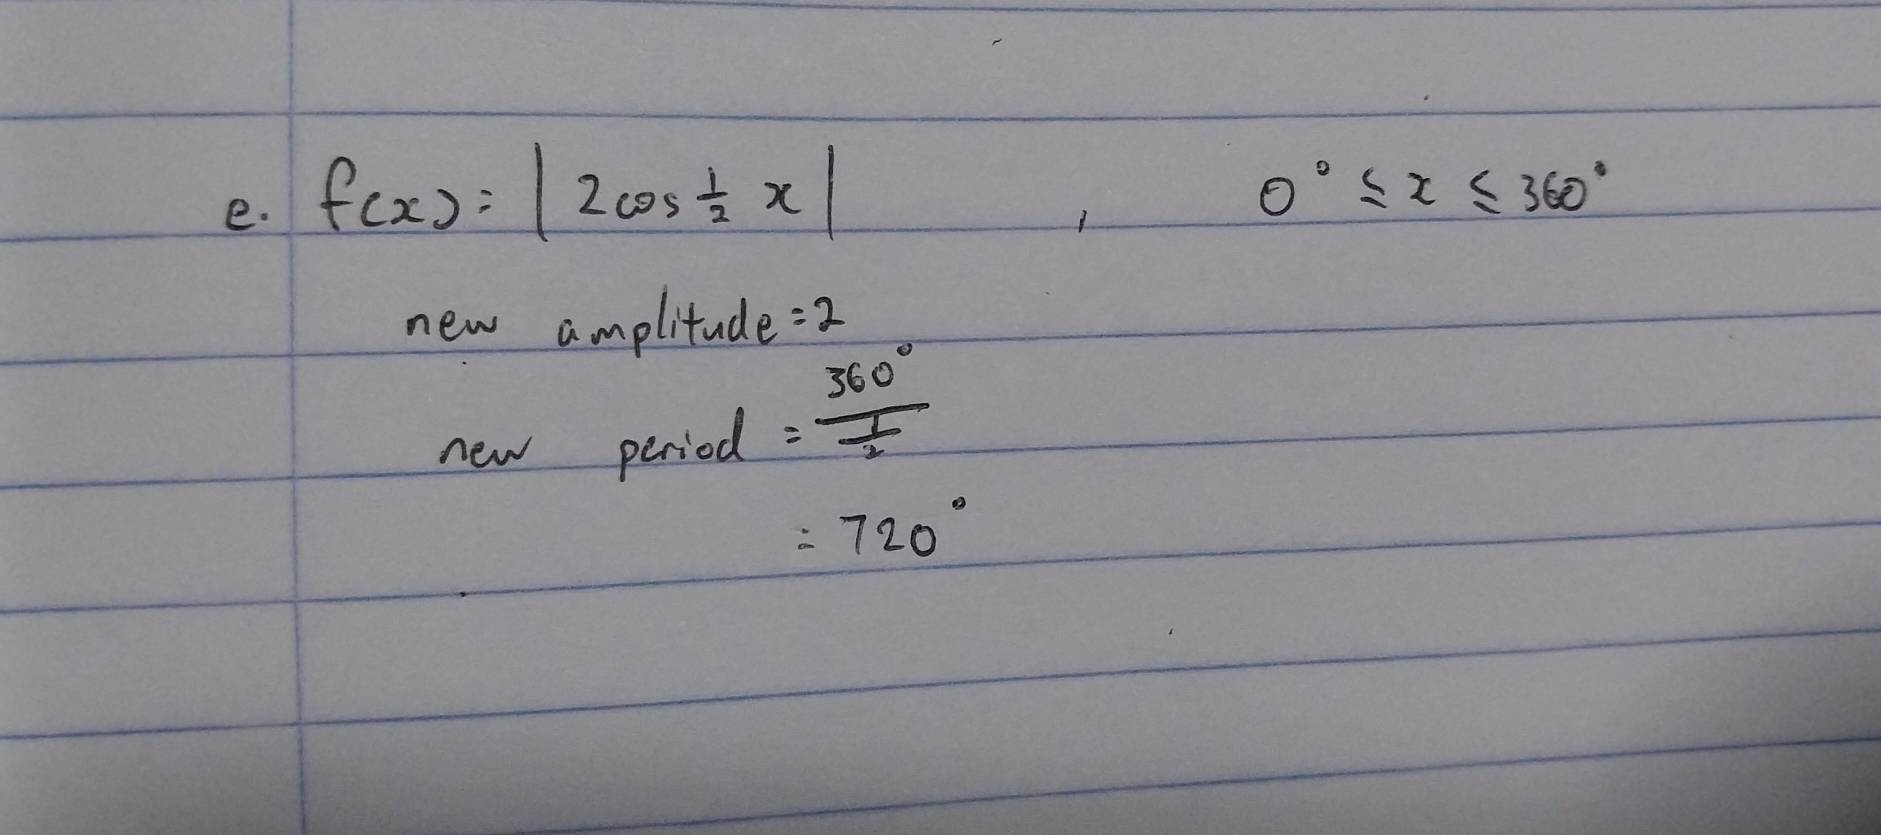 e. f(x) = |2cos ½ x| , 0° ≤ x ≤ 360°
new amplitude = 2
new period = 360° / ½
= 720°